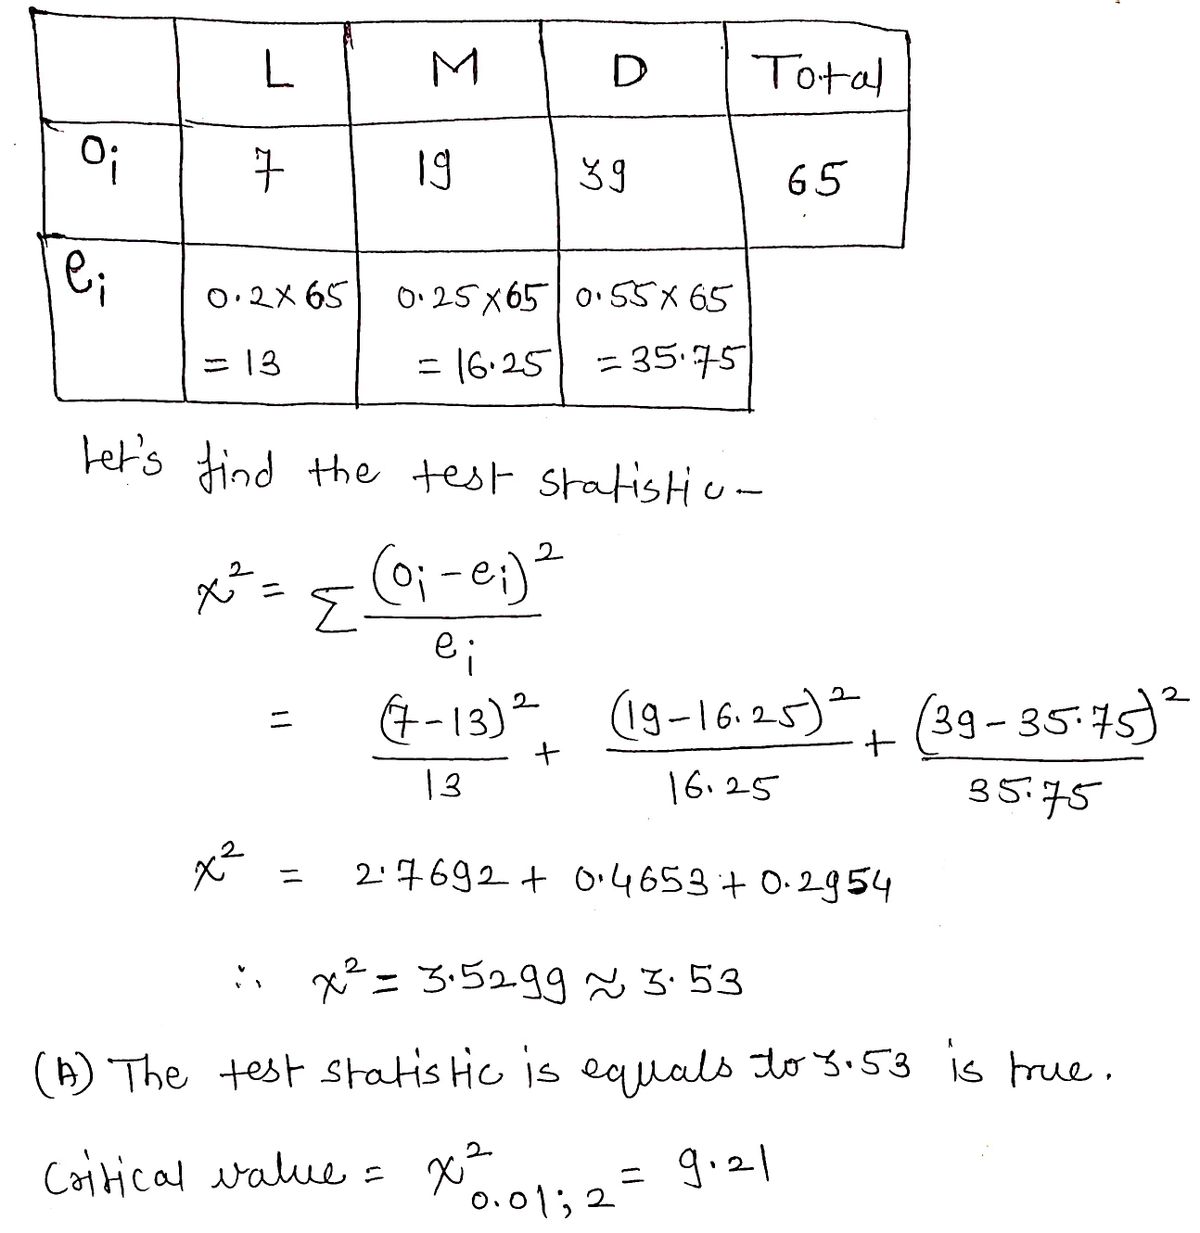 L M D Total
oi 7 19 39 65
ei 0.2×65 0.25×65 0.55×65
=13 =16.25 =35.75
Let's find the test statistic-
x² = Σ (oi-ei)² / ei
= (7-13)²/13 + (19-16.25)²/16.25 + (39-35.75)²/35.75
x² = 2.7692 + 0.4653 + 0.2954
∴ x² = 3.5299 ≈ 3.53
(A) The test statistic is equals to 3.53 is true.
Critical value = x²0.01;2 = 9.21